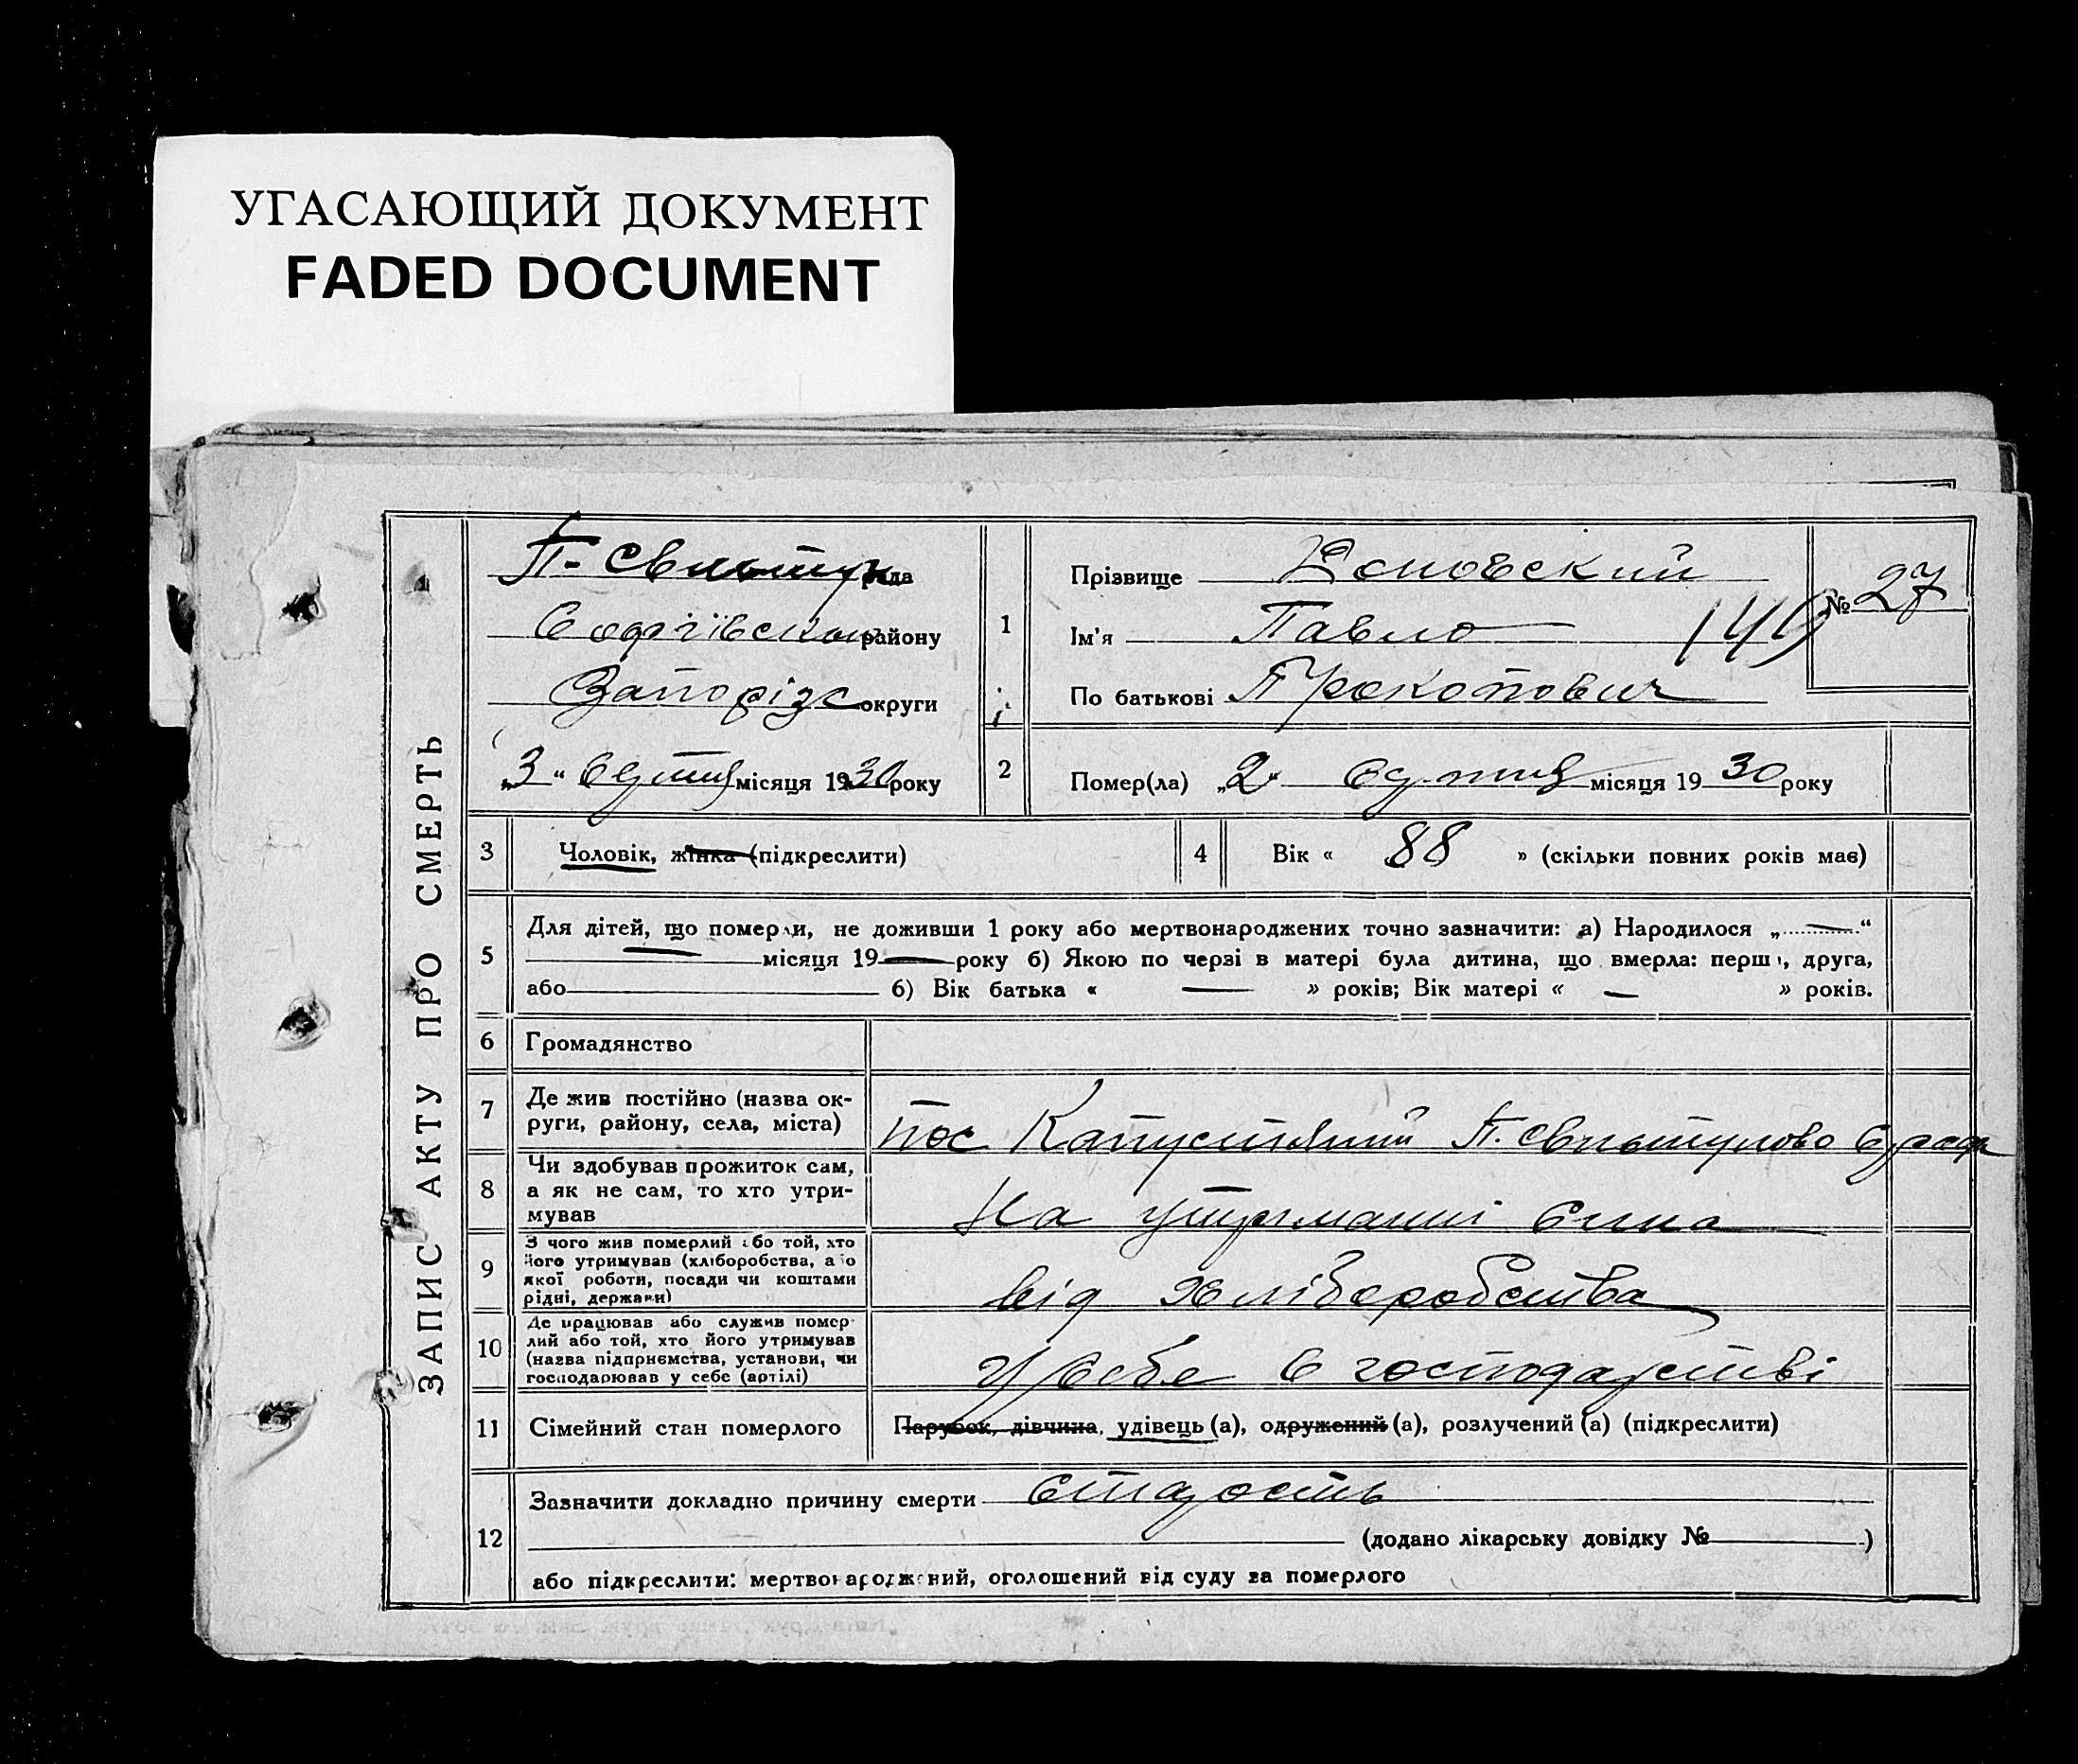 УГАСАЮЩИЙ ДОКУМЕНТ
FADED DOCUMENT
ЗАПИС АКТУ ПРО СМЕРТЬ
П. рада
Софіївского району
Запорізс округи
„3“ Сутня місяця 1930 року
1
Прізвище
Ім'я Павло
149
По батькові Прокопович
№ 27
2
Помер(ла) „2“ Сутня місяця 19 30 року
3 Чоловік, жінка (підкреслити)
4 Вік « 88 » (скільки повних років має)
5
Для дітей, що померли, не доживши 1 року або мертвонароджених точно зазначити: а) Народилося „ — “
— місяця 19 — року б) Якою по черзі в матері була дитина, що вмерла: перша, друга,
або 6) Вік батька « — » років; Вік матері « — » років.
6 Громадянство
7
Де жив постійно (назва ок-
руги, району, села, міста)
пос Капустяний П.
8
Чи здобував прожиток сам,
а як не сам, то хто утри-
мував
На утриманні Сина
9
З чого жив померлий або той, хто
його утримував (хліборобства, або
якої роботи, посади чи коштами
рідні, держави)
від хліборобства
10
Де працював або служив помер-
лий або той, хто його утримував
(назва підприємства, установи, чи
господарював у себе (артілі)
У себе в господарстві
11 Сімейний стан померлого
Парубок, дівчина, удівець (а), одружений (а), розлучений (а) (підкреслити)
12
Зазначити докладно причину смерти Старость
(додано лікарську довідку № )
або підкреслити: мертвонароджений, оголошений від суду за померлого